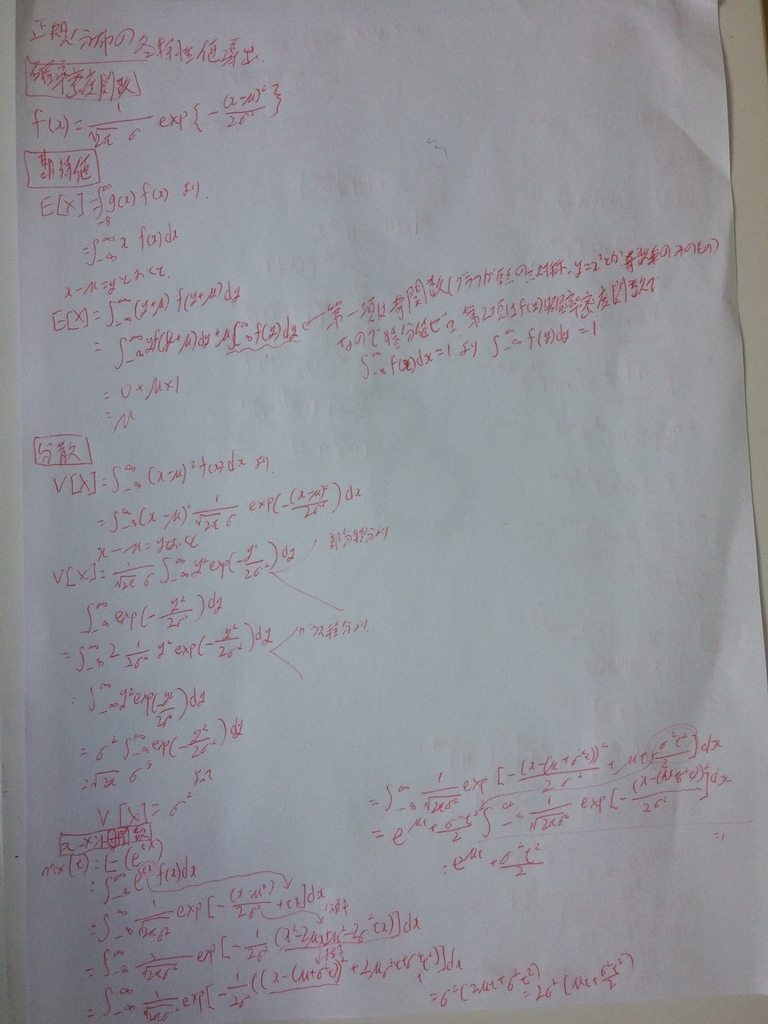 正規分布の各特性値導出.
確率密度関数
f(x)=1/(√2π σ) exp{-(x-μ)²/2σ²}
期待値
E[X]=∫_{-∞}^{∞} g(x) f(x) より.
=∫_{-∞}^{∞} x f(x)dx
x-μ=yとおくと.
E[X]=∫_{-∞}^{∞}(y+μ) f(y+μ)dy
=∫_{-∞}^{∞} yf(y+μ)dy+μ∫_{-∞}^{∞} f(y)dy ← 第一項は奇関数(グラフが原点の点対称.
なので積分値ゼロ 第2項はf(x)が確率密度関数で
∫_{-∞}^{∞} f(x)dx=1 より ∫_{-∞}^{∞} f(y)dy=1
=0+μ×1
=μ
分散
V[X]=∫_{-∞}^{∞}(x-μ)²f(x)dx より.
=∫_{-∞}^{∞}(x-μ)² 1/(√2π σ) exp(-(x-μ)²/2σ²)dx
x-μ=yとおくと
V[X]=1/(√2π σ) ∫_{-∞}^{∞} y²exp(-y²/2σ²)dy 部分積分より
∫_{-∞}^{∞} exp(-y²/2σ²)dy
=∫_{-∞}^{∞} 2 1/2σ² y² exp(-y²/2σ²)dy
=∫_{-∞}^{∞} y²exp(-y²/2σ²)dy
=σ²∫_{-∞}^{∞} exp(-y²/2σ²)dy
=√2π σ³
より
V[X]=σ²
関数
mx(t)=E(e^{tX})
=∫_{-∞}^{∞} e^{tx} f(x)dx
=∫_{-∞}^{∞} 1/√2πσ² exp[-(x-μ)²/2σ²+tx]dx
=∫_{-∞}^{∞} 1/√2πσ² exp[-1/2σ² (x²-2μx+μ²-2σ²tx)]dx
=∫_{-∞}^{∞} 1/√2πσ² exp[-1/2σ² ((x-(μ+σ²t))²+2μσ²t+σ⁴t²)]dx
=σ²(2μt+σ²t²)
=2σ²(μt+σ²t²/2)
=∫_{-∞}^{∞} 1/√2πσ² exp[-(x-(μ+σ²t))²/2σ²+μt+σ²t²/2]dx
=e^{μt+σ²t²/2}∫_{-∞}^{∞} 1/√2πσ² exp[-(x-(μ+σ²t))²/2σ²]dx
=1
=e^{μt+σ²t²/2}